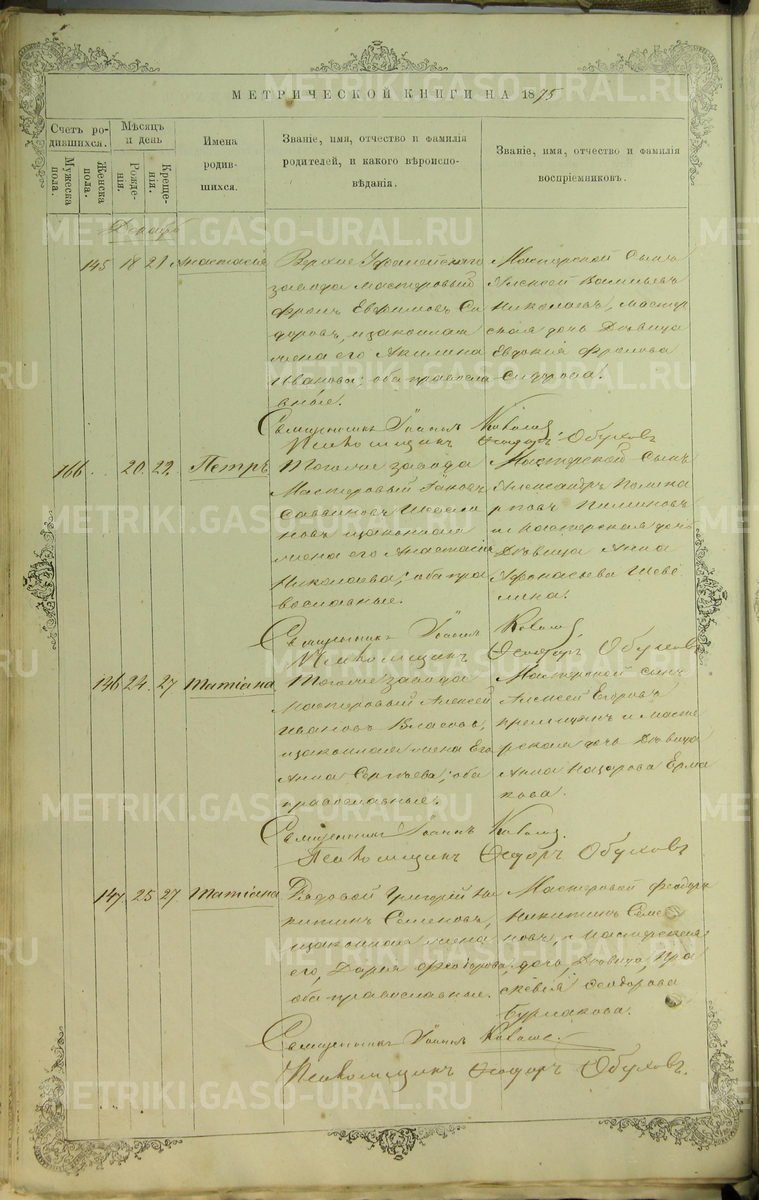 МЕТРИЧЕСКОЙ КНИГИ НА 1875
Счетъ ро-
дившихся.
Мужеска
пола.
Женска
пола.
Мѣсяцъ
и день
Рожде-
нія.
Креще-
нія.
Имена
родив-
шихся.
Званіе, имя, отчество и фамилія
родителей, и какого вѣроиспо-
вѣданія.
Званіе, имя, отчество и фамилія
воспріемниковъ.
Декабрь
145 18 21 Анастасія
завода мастеровый
Фролъ Евфимовъ Си
доровъ, и законная
жена его Акилина
Иванова; оба правосла
вные.
Мастерской сынъ
Алексей Васильевъ
Николаевъ, мастер
ская дочь Дѣвица
Евдокія Фролова
Сидорова.
Священникъ Іоаннъ
Псаломщикъ Ѳеодоръ Обуховъ
166 20 22 Петръ
Тогоже завода
Мастеровый Іаковъ
Савиновъ
новъ и законная
жена его Анастасія
Николаева; оба пра
вославные.
Мастерской сынъ
Александръ
и мастерская дочь
Дѣвица Анна
Афонасьева Шеве
лина.
Священникъ Іоаннъ
Псаломщикъ Ѳеодоръ Обуховъ
146 24 27 Татіана
Тогоже завода
Мастеровый Алексей
Ивановъ Власовъ,
и законная жена Его
Анна Сергѣева; оба
православные.
Мастерской сынъ
Алексей Егоровъ
и Масте
рская дочь Дѣвица
Анна Назарова Ерма
кова.
Священникъ Іоаннъ
Псаломщикъ Ѳеодоръ Обуховъ
147 25 27 Татіана
Рядовой Григорій Ни
китинъ Семеновъ,
и законная жена
его, Дарія Ѳеодорова,
оба православные.
Мастеровой Феодоръ
Никитинъ Семе
новъ, и Мастерская
дочь, Дѣвица, Пра
скевія Ѳеодорова
Бурмакова.
Священникъ Іоаннъ
Псаломщикъ Ѳеодоръ Обуховъ.
METRIKI.GASO-URAL.RU